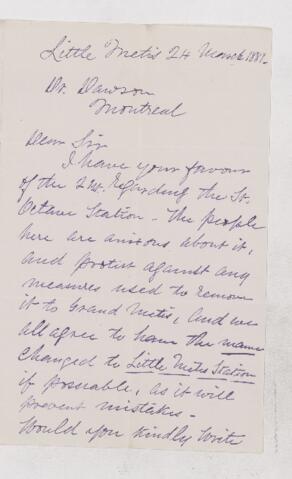 Little Metis 24 March 1881.
Dr. Dawson
Montreal
Dear Sir
I have your favour
of the regarding the St.
Octave Station - the people
here are anxious about it,
and protest against any
measures used to remove
it to Grand Metis, and we
all agree to have the name
changed to Little Metis Station
if possiable, as it will
prevent mistakes -
Would you kindly write